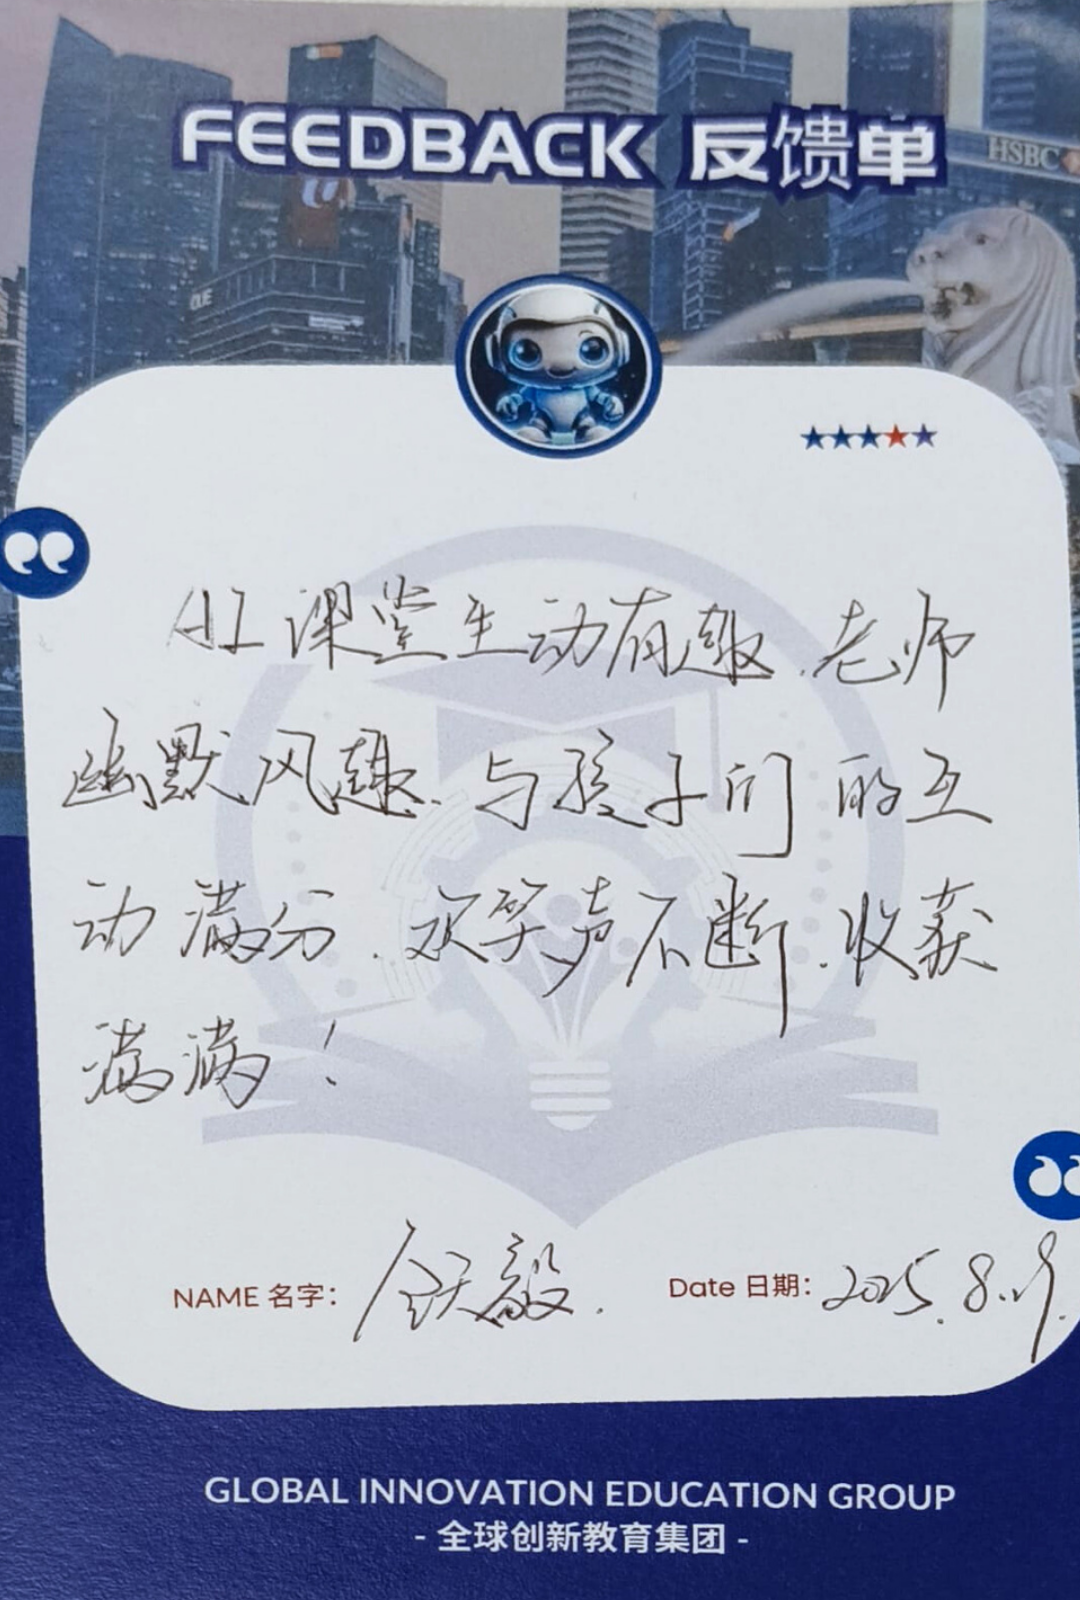 FEEDBACK 反馈单
HSBC
AI课堂生动有趣.老师
幽默风趣.与孩子们的互
动满分.欢笑声不断.收获
满满!
NAME 名字:
Date 日期: 2025.8.19.
GLOBAL INNOVATION EDUCATION GROUP
- 全球创新教育集团 -